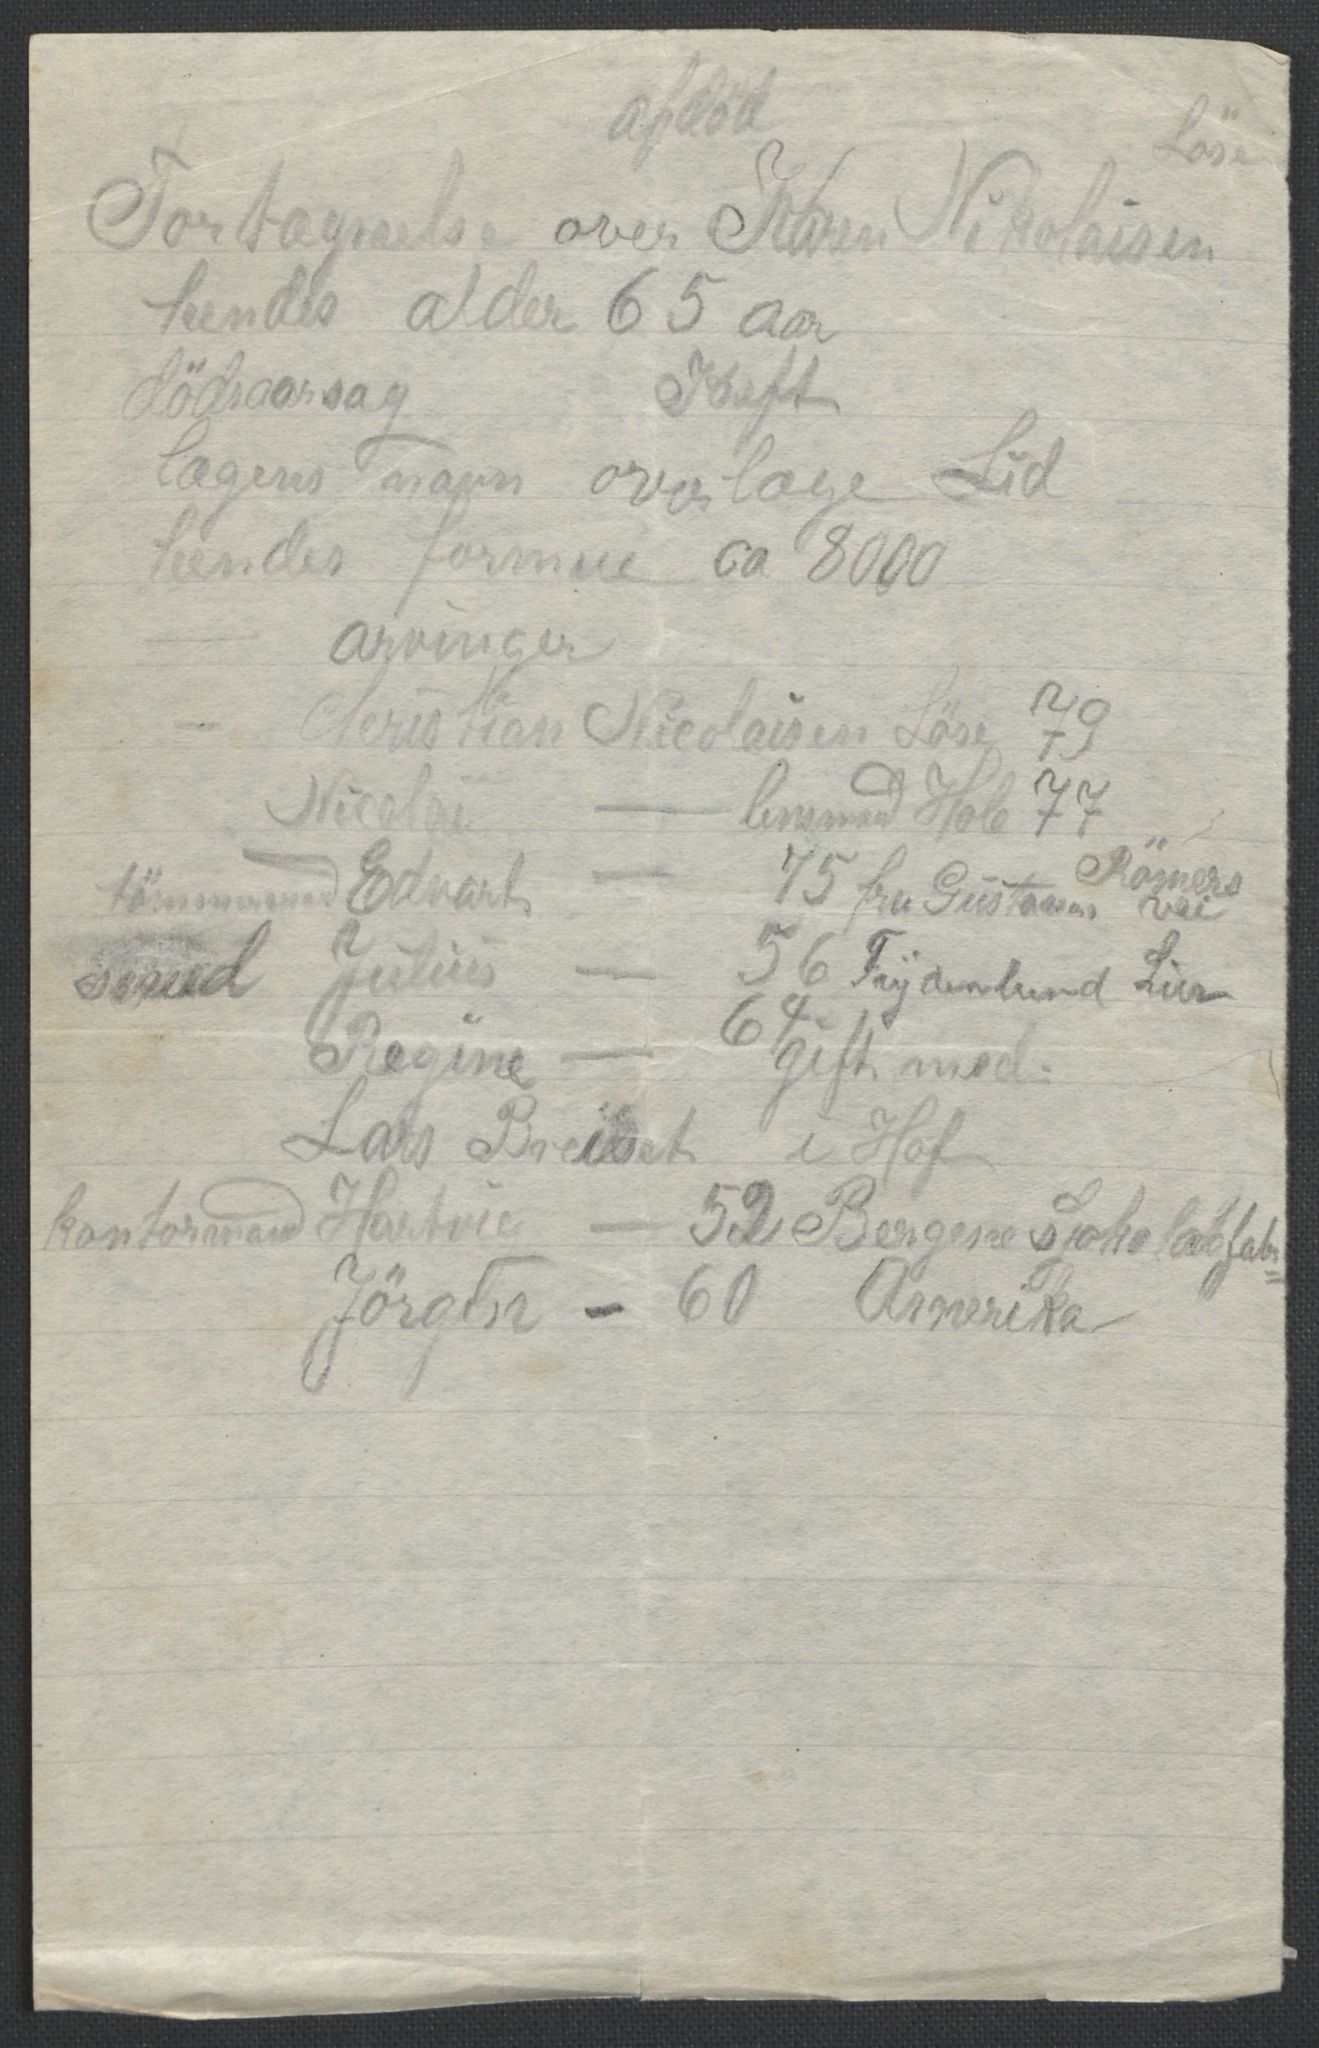 afdöd
Löse
Fortegnelse over Karen Nikolaisen
hendes alder 65 aar
dödsaarsag Kreft
lægens navn overlæge Lid
hendes formue ca 8000
— arvinger
— Christian Nicolaisen Löse 79
Nicolai — lensmand Hole 77
tömmermand Edvart — 75 fru Gustavsen Römers vei
smed Julius — 56 Frydenlund Lier
Regine — 64 gift med
Lars Breiset i Hof
kontormand Hartvic — 52 Bergene Sjokoladefabr
Jörgen - 60 Amerika